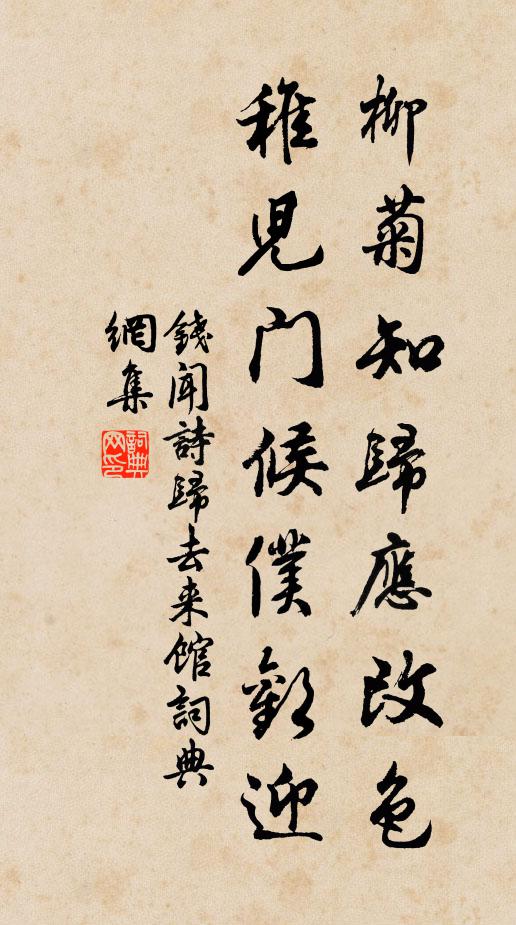 柳菊知歸應改色
稚兒門候僕歡迎
錢聞詩歸去来館詞典
網集
詞典網印